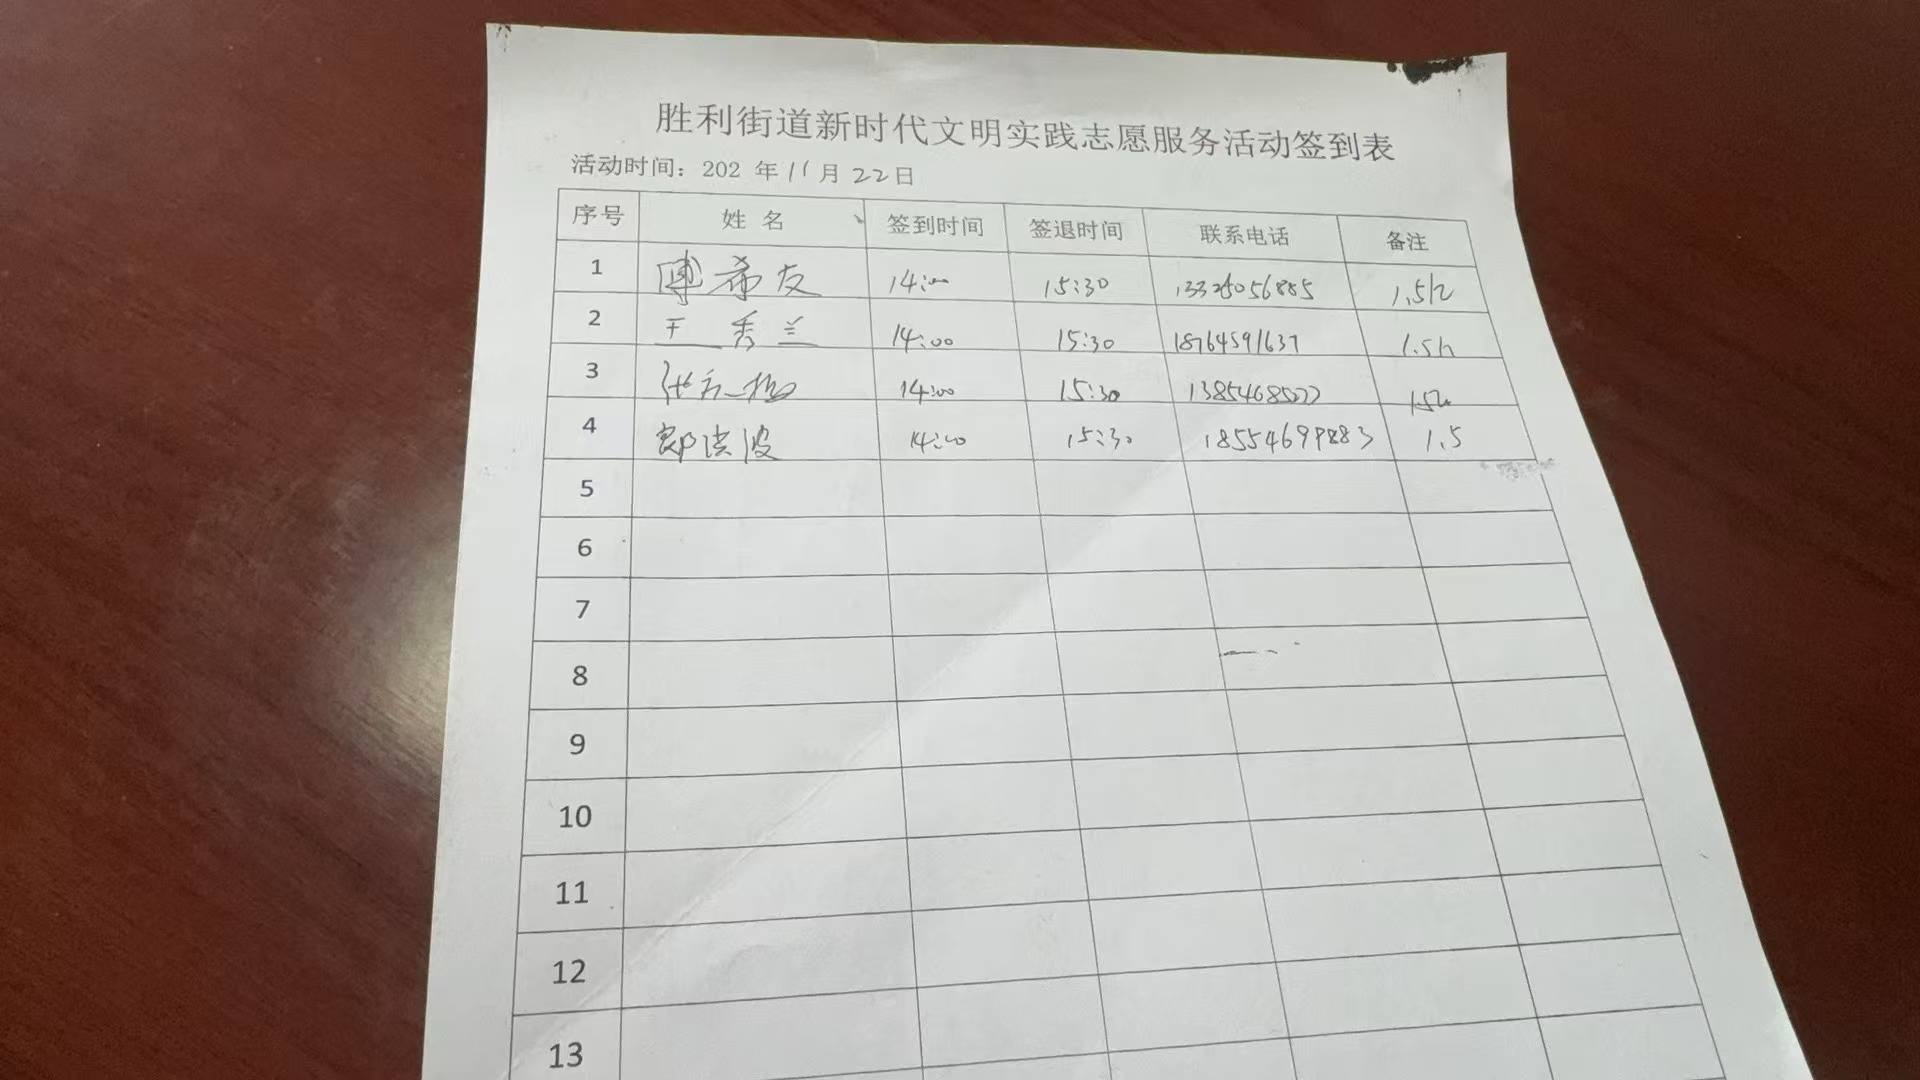 胜利街道新时代文明实践志愿服务活动签到表
活动时间：202 年 11月 22日
序号 姓 名 签到时间 签退时间 联系电话 备注
1 希友 14:00 15:30 1.5h
2 王秀兰 14:00 15:30 18764591637 1.5h
3 14:00 15:30 1.5h
4 郎洪波 14:00 15:30 18554699883 1.5
5
6
7
8
9
10
11
12
13